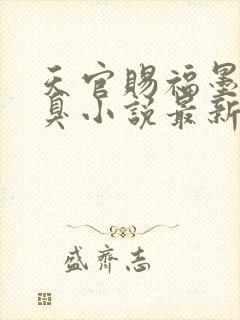 天官賜福墨
臭小說最新
盛齊志